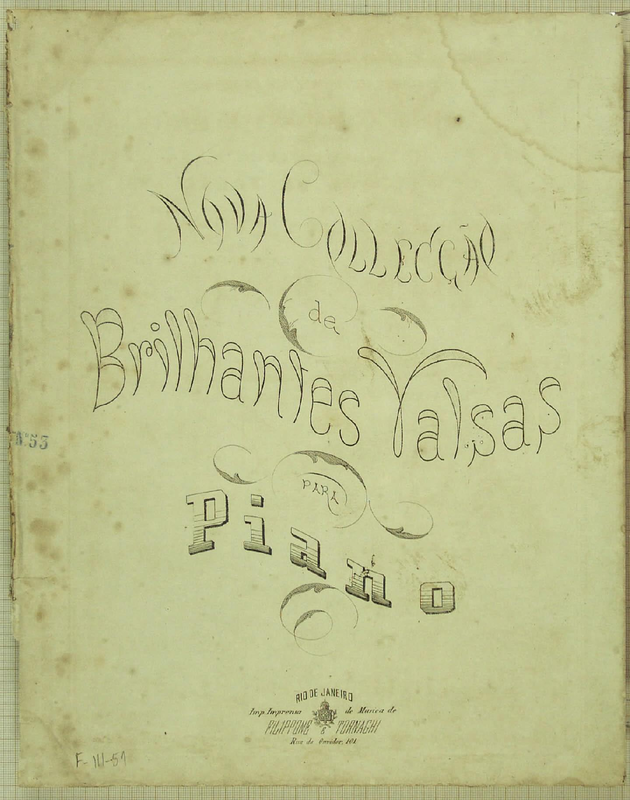 NOVA COLLECÇÃO
de
Brilhantes Valsas
PARA
Piano
Nº 53
RIO DE JANEIRO
Imp. Imprensa de Musica de
FILIPPONE & TORNAGHI
Rua do Ouvidor, 101
F-III-51